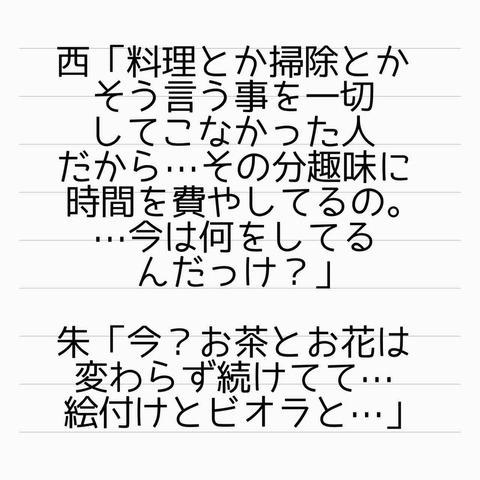 西「料理とか掃除とか
そう言う事を一切
してこなかった人
だから…その分趣味に
時間を費やしてるの。
…今は何をしてる
んだっけ？」
朱「今？お茶とお花は
変わらず続けてて…
絵付けとビオラと…」